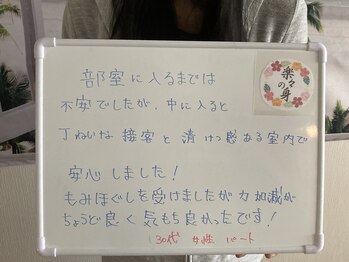 部室に入るまでは
不安でしたが、中に入ると
丁ねいな 接客と 清けつ感ある室内で
安心しました!
もみほぐしを受けましたが力加減が
ちょうど良く 気もち良かったです!
30代 女性 パート
楽々の身